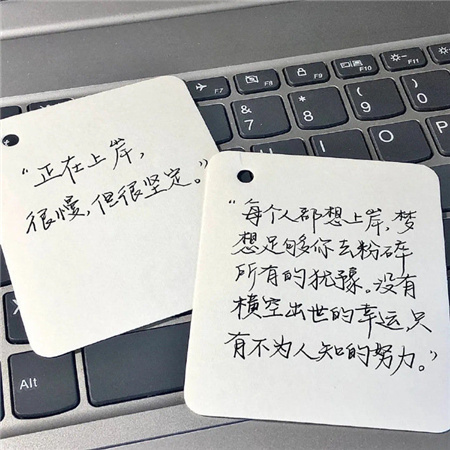 “正在上岸，
很慢，但很坚定。”
“每个人都想上岸，梦
想足够你去粉碎
所有的犹豫。没有
横空出世的幸运，只
有不为人知的努力。”
F7
F8
F9
F10
F11
&
7
*
8
(
9
)
0
U
I
Alt